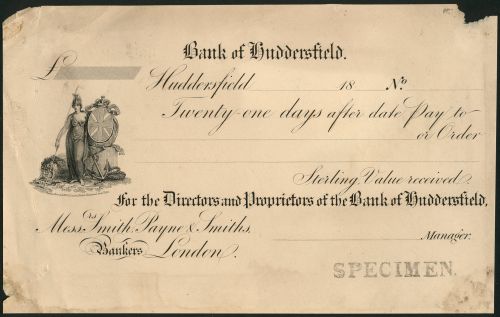 Bank of Huddersfield.
£
Huddersfield 18 No
Twenty-one days after date Pay to
or Order
Sterling, Value received
For the Directors and Proprietors of the Bank of Huddersfield,
Messrs Smith, Payne & Smiths,
Manager.
Bankers London.
SPECIMEN.